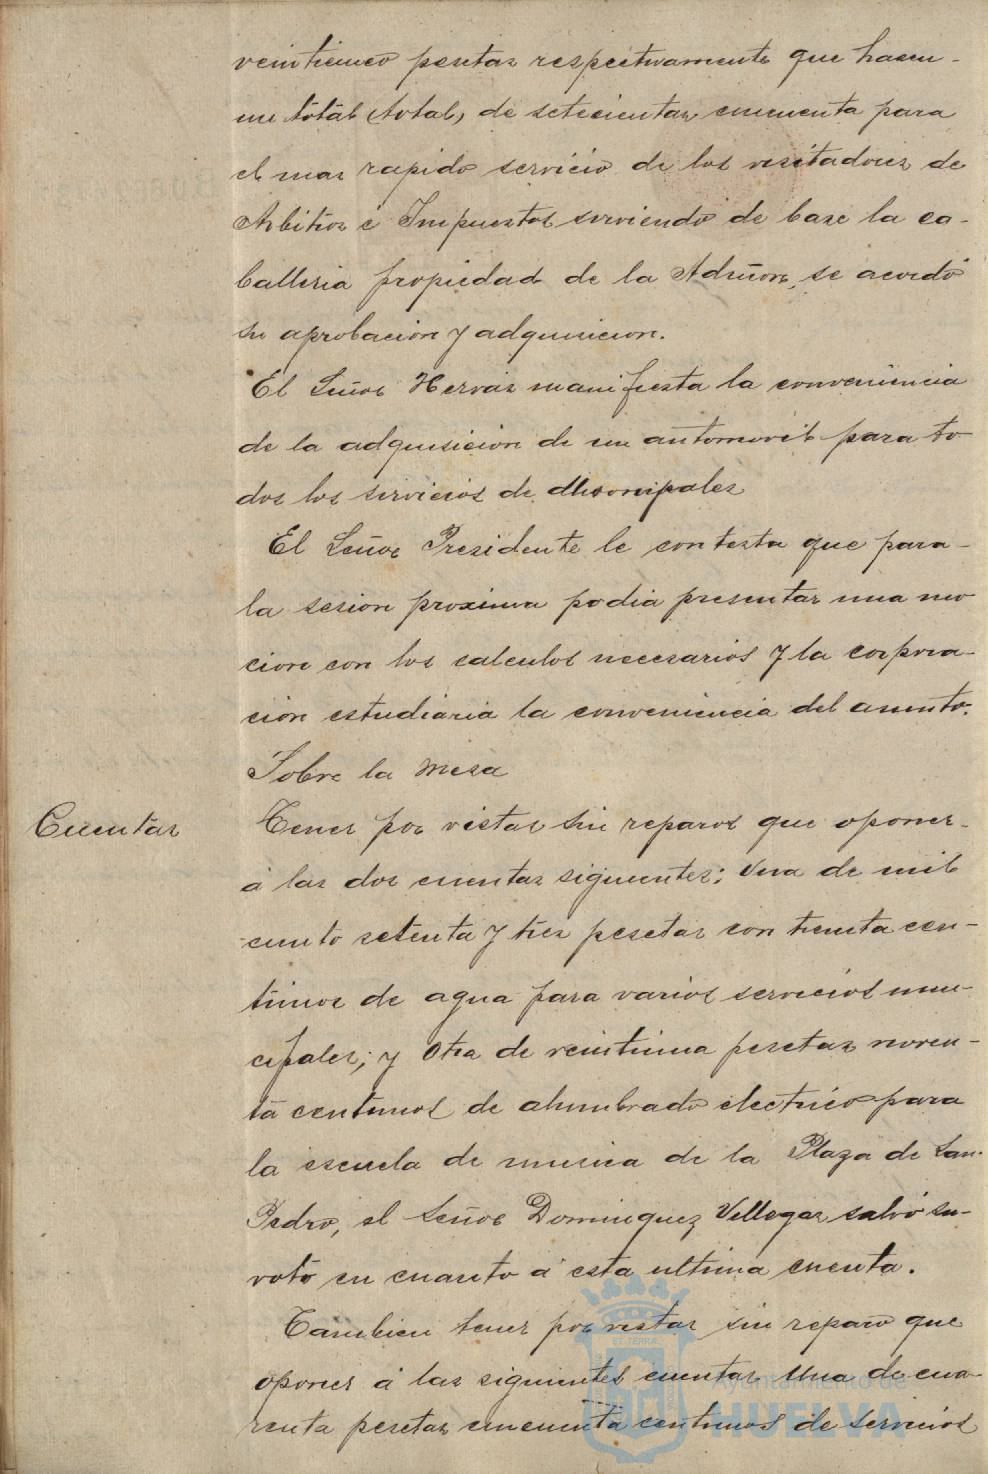 veinticinco pesetas respectivamente que hacen-
un total (total) de setecientas cincuenta para
el mas rapido servicio de los visitadores de
Arbitros é Impuestos sirviendo de base la ca-
balleria propiedad de la Admon, se acordó
su aprobacion y adquisicion.
El Señor Hervás manifiesta la conveniencia
de la adquisicion de un automovil para to
dos los servicios de
El Señor Presidente le contesta que para-
la sesion proxima podia presentar una mo
cion con los calculos necesarios y la corpora-
cion estudiaria la conveniencia del asunto.
Sobre la mesa
Cuentas
Tener por vistas sin reparos que oponer-
á las dos cuentas siguientes; Una de mil
ciento setenta y tres pesetas con treinta cen-
timos de agua para varios servicios muni-
cipales; y otra de veintiuna pesetas noven-
ta centimos de alumbrado electrico para
la escuela de musica de la Plaza de San-
Pedro, el Señor Dominguez Villegas salvó su-
voto en cuanto á esta ultima cuenta.
Tambien tener por vistas sin reparo que
oponer á las siguientes cuentas Una de cua-
renta pesetas cincuenta centimos de servicios
Ayuntamiento de
HUELVA